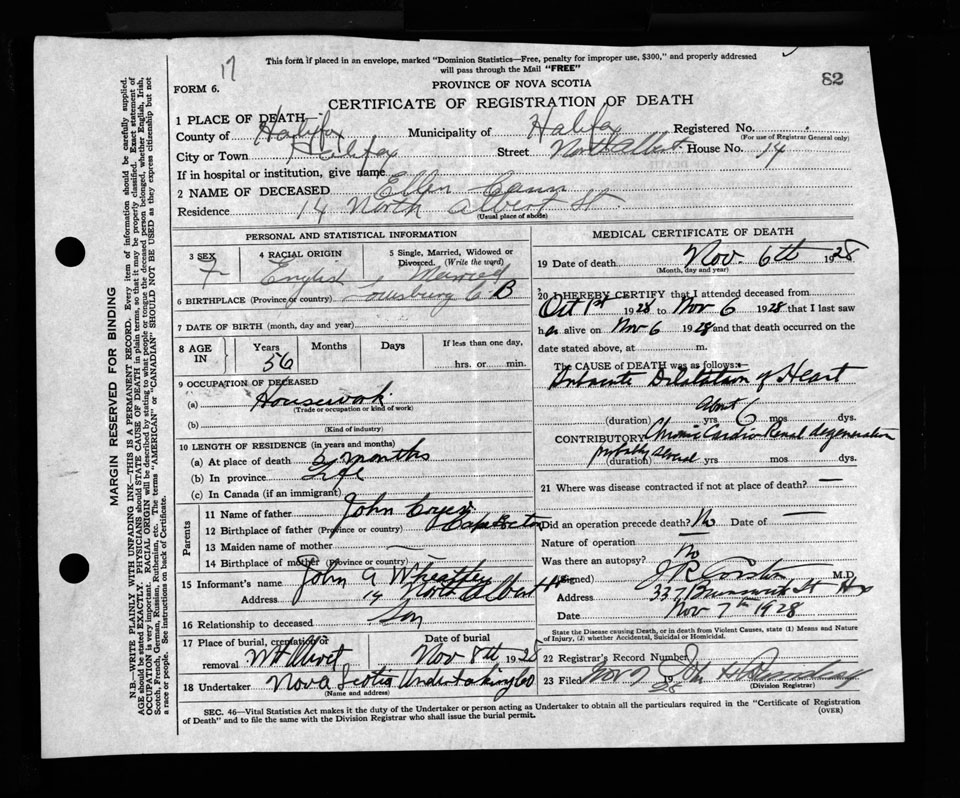 17
This form if placed in an envelope, marked "Dominion Statistics—Free, penalty for improper use, $300," and properly addressed
will pass through the Mail "FREE"
82
FORM 6.
PROVINCE OF NOVA SCOTIA
CERTIFICATE OF REGISTRATION OF DEATH
1 PLACE OF DEATH—
County of Halifax Municipality of Halifax Registered No.
(For use of Registrar General only)
City or Town Halifax Street North Albert House No. 14
If in hospital or institution, give name
2 NAME OF DECEASED Ellen Cann
Residence 14 North Albert St.
(Usual place of abode)
PERSONAL AND STATISTICAL INFORMATION
3 SEX F
4 RACIAL ORIGIN English
5 Single, Married, Widowed or Divorced. (Write the word) Married
6 BIRTHPLACE (Province or country) Louisburg C B
7 DATE OF BIRTH (month, day and year)
8 AGE IN Years 56 Months Days If less than one day, hrs. or min.
9 OCCUPATION OF DECEASED
(a) Housework
(Trade or occupation or kind of work)
(b)
(Kind of industry)
10 LENGTH OF RESIDENCE (in years and months)
(a) At place of death 3 months
(b) In province Life
(c) In Canada (if an immigrant)
Parents
11 Name of father John
12 Birthplace of father (Province or country) Cape Breton
13 Maiden name of mother —
14 Birthplace of mother (Province or country) —
15 Informant's name John A Wheatley
Address 14 North Albert St
16 Relationship to deceased Son
17 Place of burial, cremation or removal Mt Olivet
Date of burial Nov 8th 1928
18 Undertaker Nova Scotia Undertaking Co
(Name and address)
MEDICAL CERTIFICATE OF DEATH
19 Date of death Nov. 6th 1928
(Month, day and year)
20 I HEREBY CERTIFY that I attended deceased from
Oct 1st 1928 to Nov 6 1928 that I last saw
her alive on Nov 6 1928 and that death occurred on the
date stated above, at m.
The CAUSE OF DEATH was as follows:
Dilatation of Heart
About
(duration) yrs 6 mos dys.
CONTRIBUTORY Chronic Cardio Renal degeneration
probably several
(duration) yrs mos dys.
21 Where was disease contracted if not at place of death? —
Did an operation precede death? No Date of —
Nature of operation —
Was there an autopsy? No
(Signed) J R Corston M.D.
Address 337 Brunswick St Hfx
Date Nov 7th 1928
State the Disease causing Death, or in death from Violent Causes, state (1) Means and Nature
of Injury, (2) whether Accidental, Suicidal or Homicidal.
22 Registrar's Record Number
23 Filed Nov 7 28
(Division Registrar)
SEC. 46—Vital Statistics Act makes it the duty of the Undertaker or person acting as Undertaker to obtain all the particulars required in the "Certificate of Registration
of Death" and to file the same with the Division Registrar who shall issue the burial permit.
(OVER)
MARGIN RESERVED FOR BINDING
N.B.—WRITE PLAINLY WITH UNFADING INK—THIS IS A PERMANENT RECORD. Every item of information should be carefully supplied.
AGE should be stated EXACTLY. PHYSICIANS should STATE CAUSE OF DEATH in plain terms, so that it may be properly classified. Exact statement of
OCCUPATION is very important. RACIAL ORIGIN will be described by stating to what people or tongue the deceased person belonged, whether English, Irish,
Scotch, French, German, Russian, Ruthenian, etc. The terms "AMERICAN" or "CANADIAN" SHOULD NOT BE USED as they express citizenship but not
a race or people. See instructions on back of Certificate.